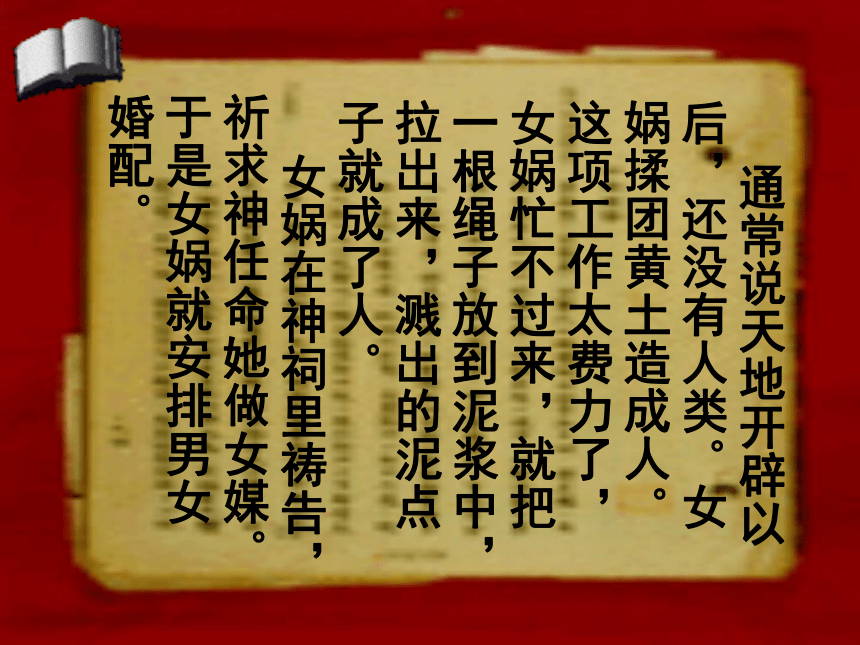 通常说天地开辟以
后，还没有人类。女
娲揉团黄土造成人。
这项工作太费力了，
女娲忙不过来，就把
一根绳子放到泥浆中，
拉出来，溅出的泥点
子就成了人。
女娲在神祠里祷告，
祈求神任命她做女媒。
于是女娲就安排男女
婚配。